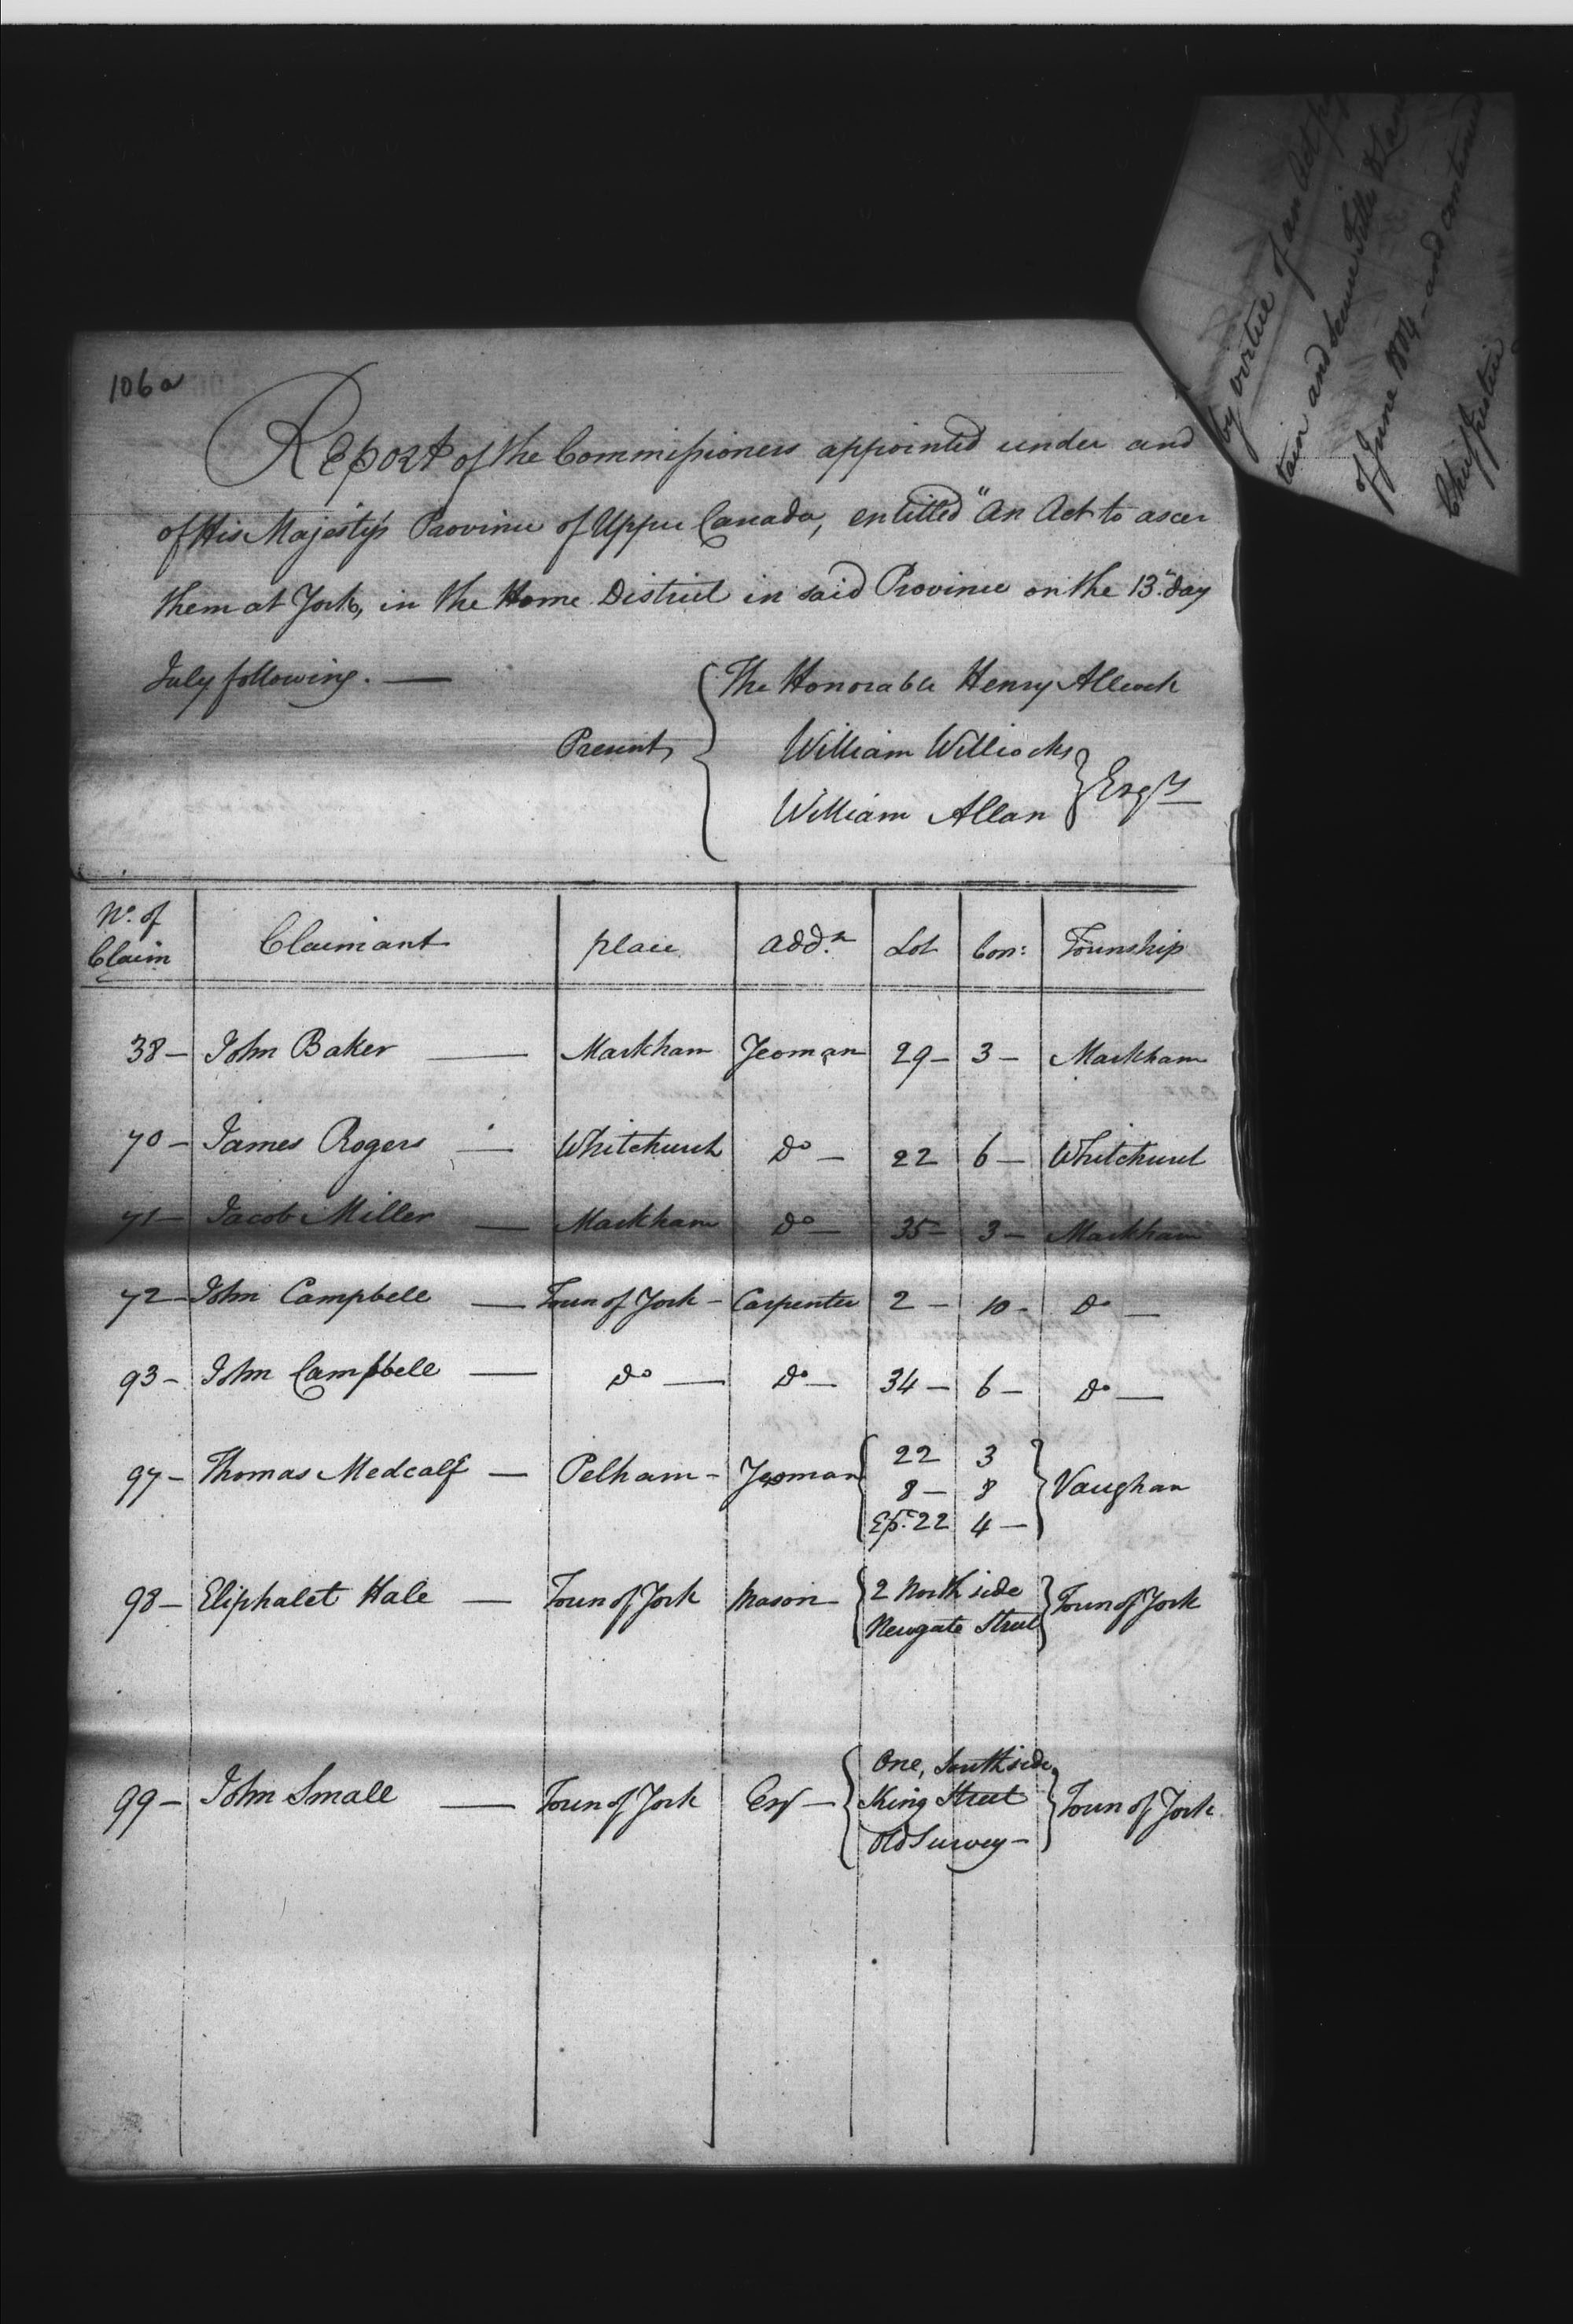 106a
Report of the Commissioners appointed under and
of His Majesty's Province of Upper Canada, entitled "An Act to ascer
them at York, in the Home District in said Province on the 13th day
July following. —
The Honorable Henry Allcock
Present
William Willcocks
William Allan } Esqrs
by virtue of an Act
tain and secure Titles to
of June 1804 — and continued
Chief Justice
No. of Claim | Claimant | place | addn | Lot | Con: | Township
38 — John Baker — Markham Yeoman 29 — 3 — Markham
70 — James Rogers — Whitchurch Do — 22 6 — Whitchurch
71 — Jacob Miller — Markham Do — 35 — 3 — Markham
72 — John Campbell — Town of York — Carpenter 2 — 10 — Do —
93 — John Campbell — Do — Do — 34 — 6 — Do —
22 3
97 — Thomas Medcalf — Pelham — Yeoman { 8 — 8 } Vaughan
22 4 —
98 — Eliphalet Hale — Town of York Mason — { 2 North side } Town of York
Newgate Street
One, South side
99 — John Small — Town of York Esqr — { King Street } Town of York
Old Survey —